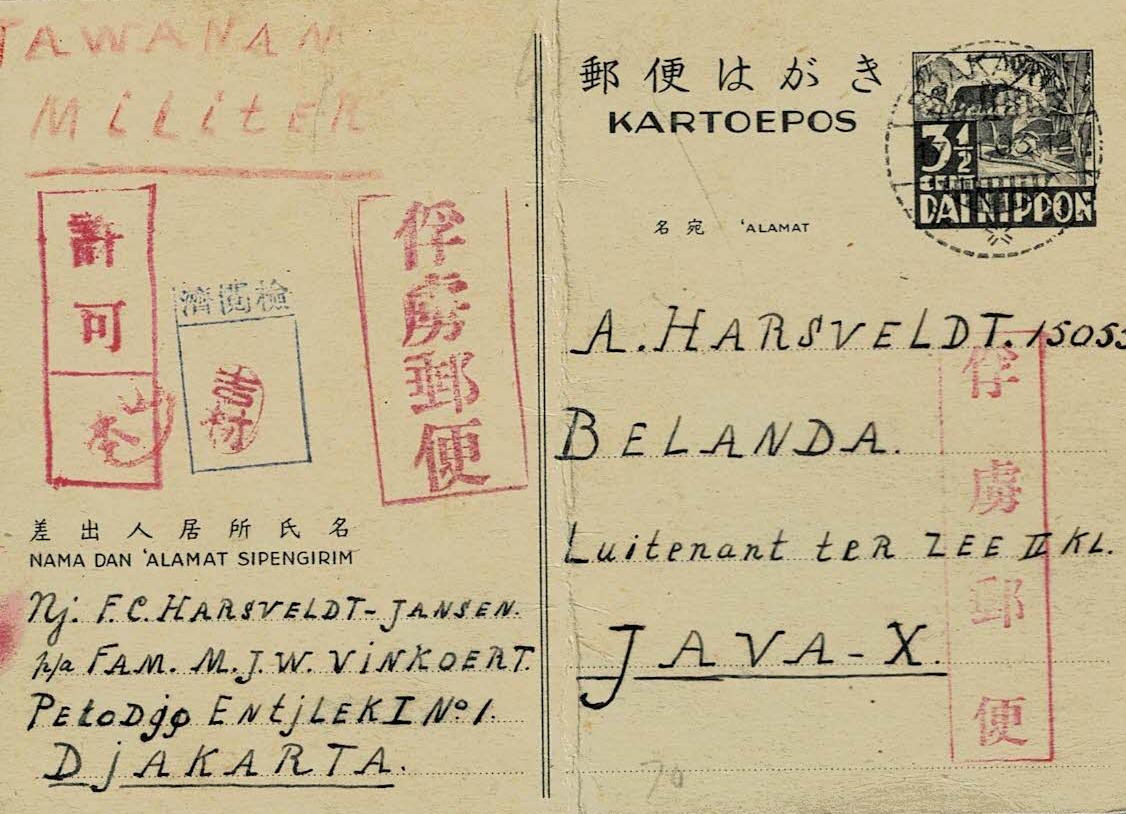 TAWANAN
MiLitER
許可
山本
濟閲檢
吉村
俘虜郵便
差出人居所氏名
NAMA DAN 'ALAMAT SIPENGIRIM
Nj. F.C. HARSVELDT-JANSEN.
p/a FAM. M.J.W. ViNKOERT.
PEtoDjo ENtjLEKI No 1.
DjAKARTA.
郵便はがき
KARTOEPOS
3½
CENT
DAI NIPPON
名宛 'ALAMAT
A. HARSVELDT. 15055
BELANDA.
Luitenant tER ZEE II KL.
JAVA-X.
俘虜郵便
70